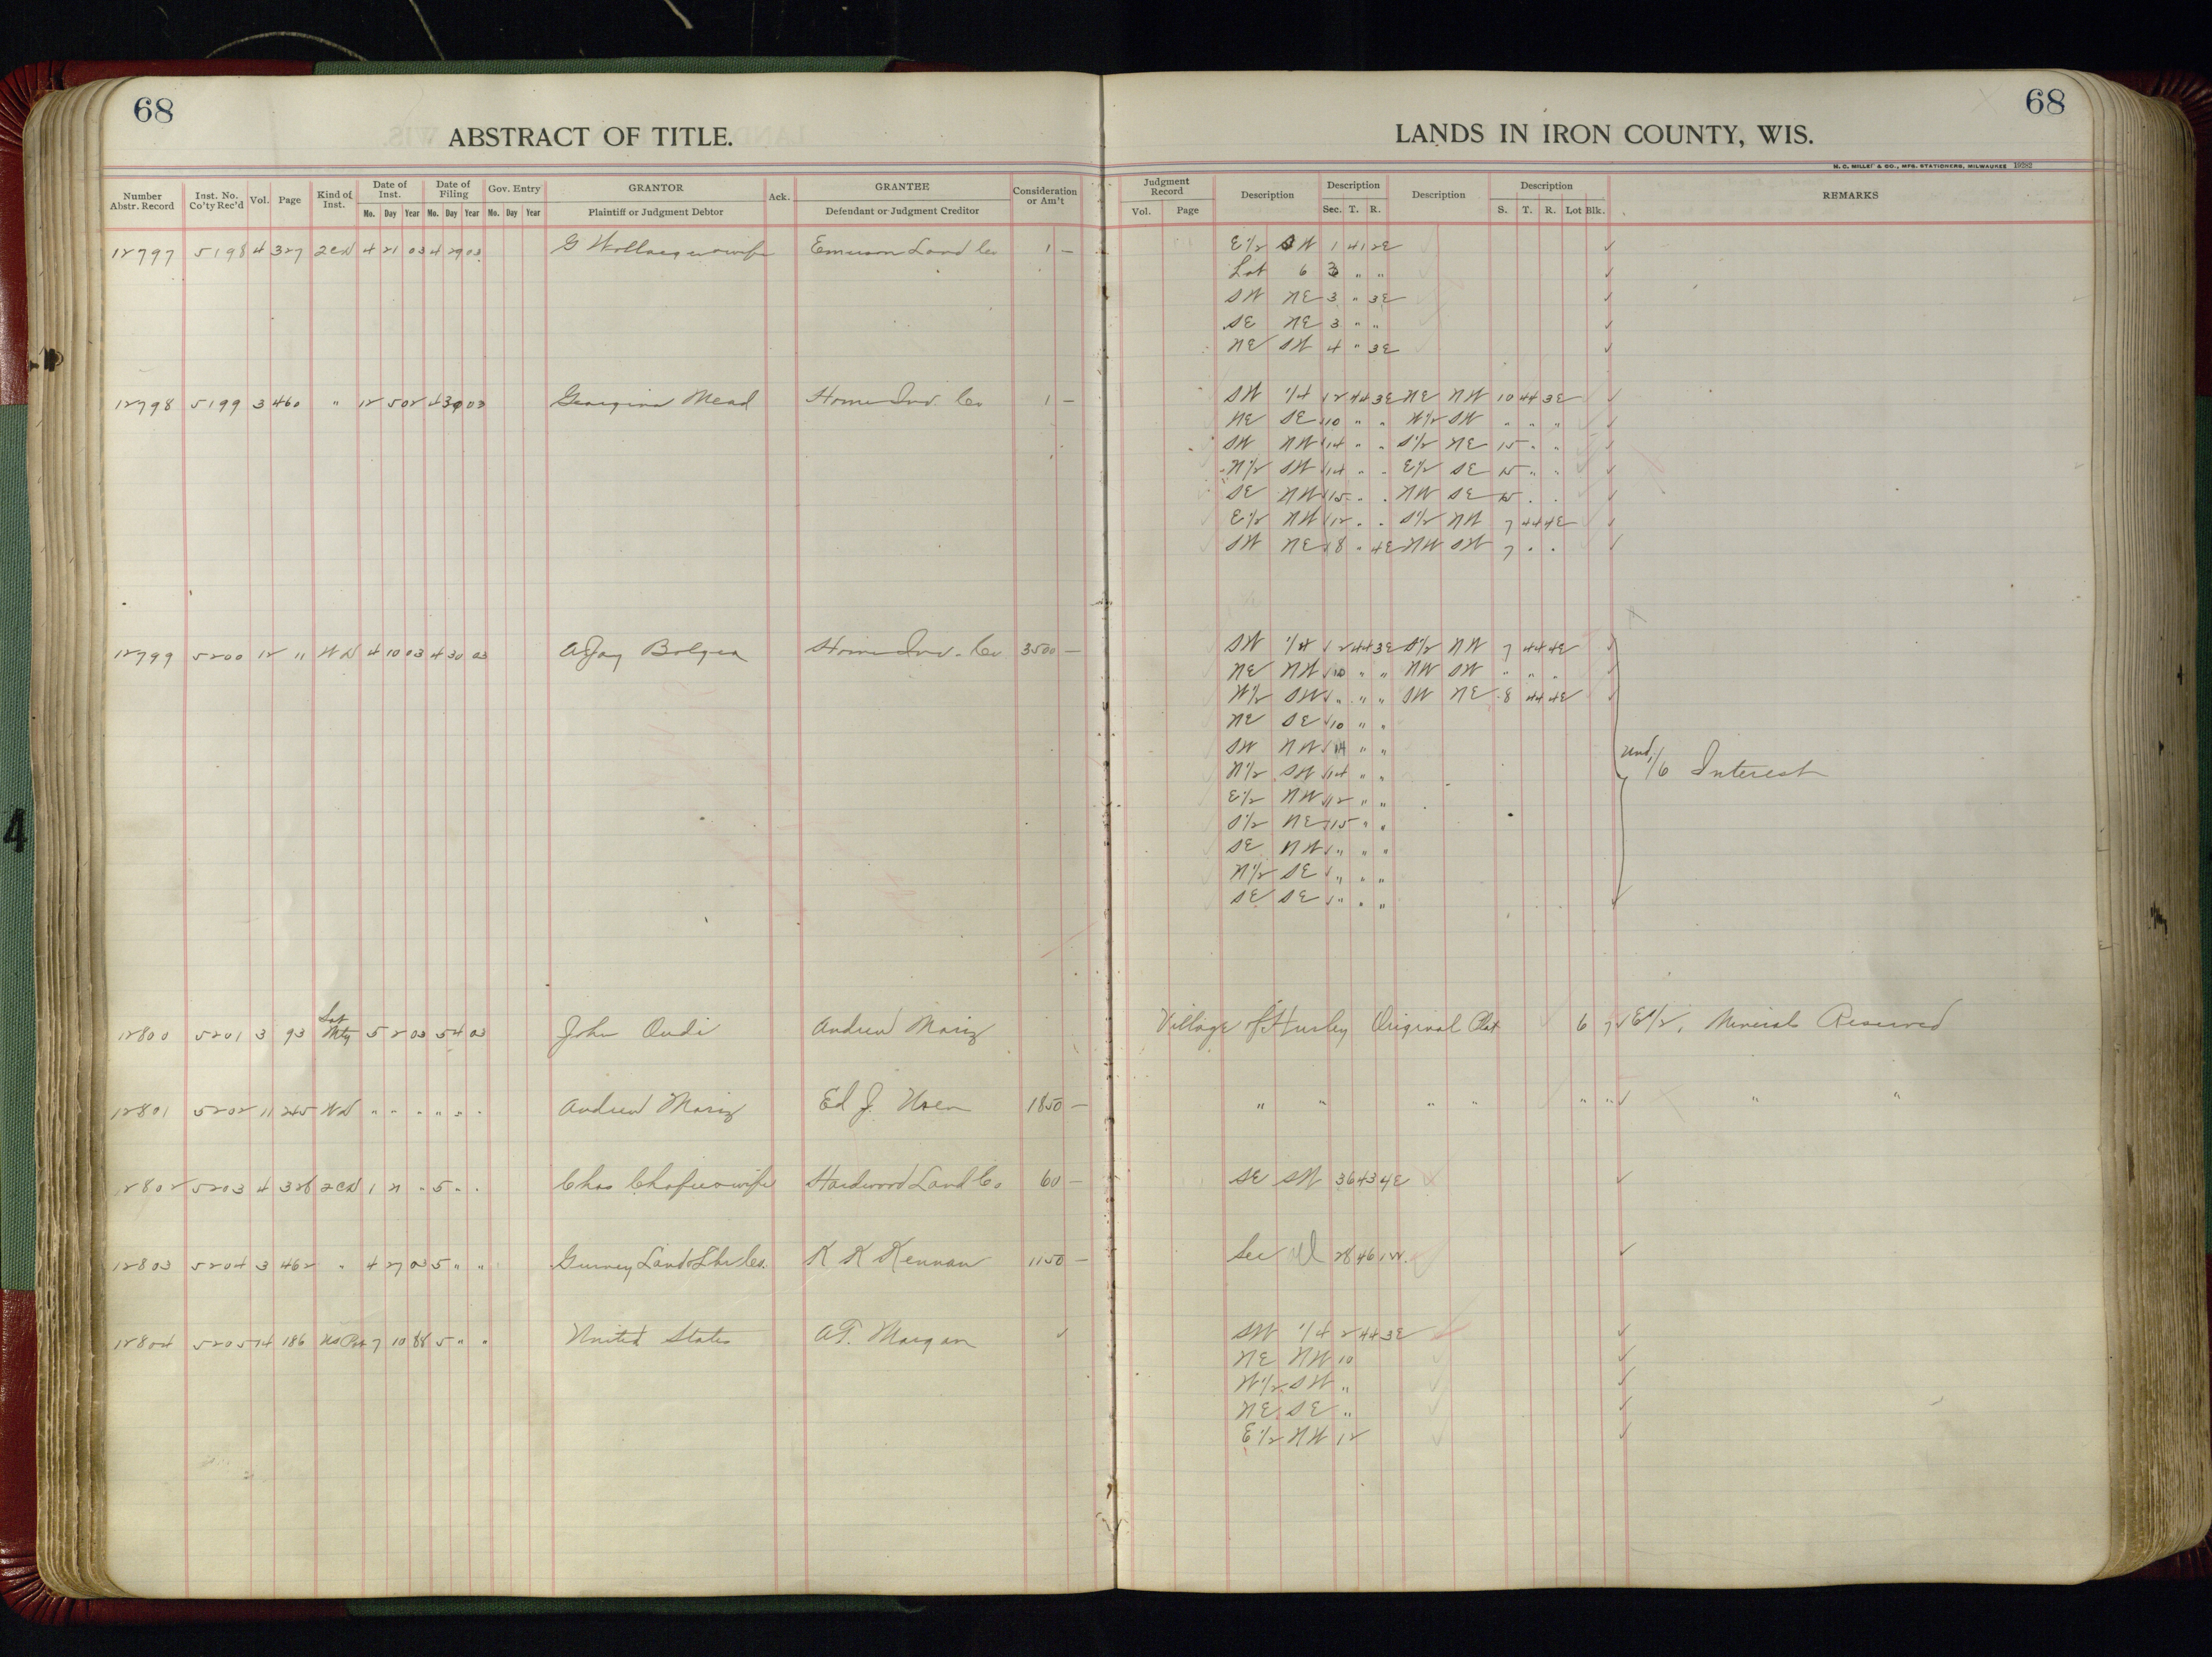 68
ABSTRACT OF TITLE.
68
LANDS IN IRON COUNTY, WIS.
H. C. MILLER & CO., MFG. STATIONERS, MILWAUKEE 19282
Number Abstr. Record | Inst. No. Co'ty Rec'd | Vol. | Page | Kind of Inst. | Date of Inst. Mo. Day Year | Date of Filing Mo. Day Year | Gov. Entry Mo. Day Year | GRANTOR Plaintiff or Judgment Debtor | Ack. | GRANTEE Defendant or Judgment Creditor | Consideration or Am't
Judgment Record Vol. Page | Description | Description Sec. T. R. | Description | Description S. T. R. Lot Blk. | REMARKS
12797 5198 4 327 2CD 4 21 03 4 29 03 G Emerson Land Co 1 — E1/2 SW 1 41 2E
Lot 6 3 " "
SW NE 3 " 3E
SE NE 3 " "
NE SW 4 " 3E
12798 5199 3 460 " 12 5 02 4 30 03 Georgina Mead Home Inv. Co 1 — SW 1/4 2 44 3E NE NW 10 44 3E
NE SE 10 " " W1/2 SW " " "
SW NW 14 " " S1/2 NE 15 " "
N1/2 SW 14 " " E1/2 SE 15 " "
SE NW 15 " " NW SE 15 " "
E1/2 NW 12 " " S1/2 NW 7 44 4E
SW NE 8 " 4E NW SW 7 " "
12799 5200 12 11 WD 4 10 03 4 30 03 A Jay Bolger Home Inv. Co 3500 — SW 1/4 2 44 3E S1/2 NW 7 44 4E
NE NW 10 " " NW SW " " "
W1/2 SW " " " SW NE 8 44 4E
NE SE 10 " "
SW NW 14 " "
N1/2 SW 14 " " Und 1/6 Interest
E1/2 NW 12 " "
S1/2 NE 15 " "
SE NW " " "
N1/2 SE " " "
SE SE " " "
12800 5201 3 93 Sat Mtg 5 2 03 5 4 03 John Oudi Andrew Village of Hurley Original Plat 6 7 E1/2, Minerals Reserved
12801 5202 11 245 WD " " " " " " Andrew Ed J. 1850 — " " " " " " " "
12802 5203 4 328 2CD 1 21 " 5 " " Chas wife Hardwood Land Co 60 — SE SW 36 43 4E
12803 5204 3 462 " 4 27 03 5 " " Gurney Land & Lbr Co. K K Kennan 1150 — Sec All 28 46 1W.
12804 5205 14 186 US Pat 7 10 88 5 " " United States A.T. Morgan SW 1/4 2 44 3E
NE NW 10
W1/2 SW "
NE SE "
E1/2 NW 12